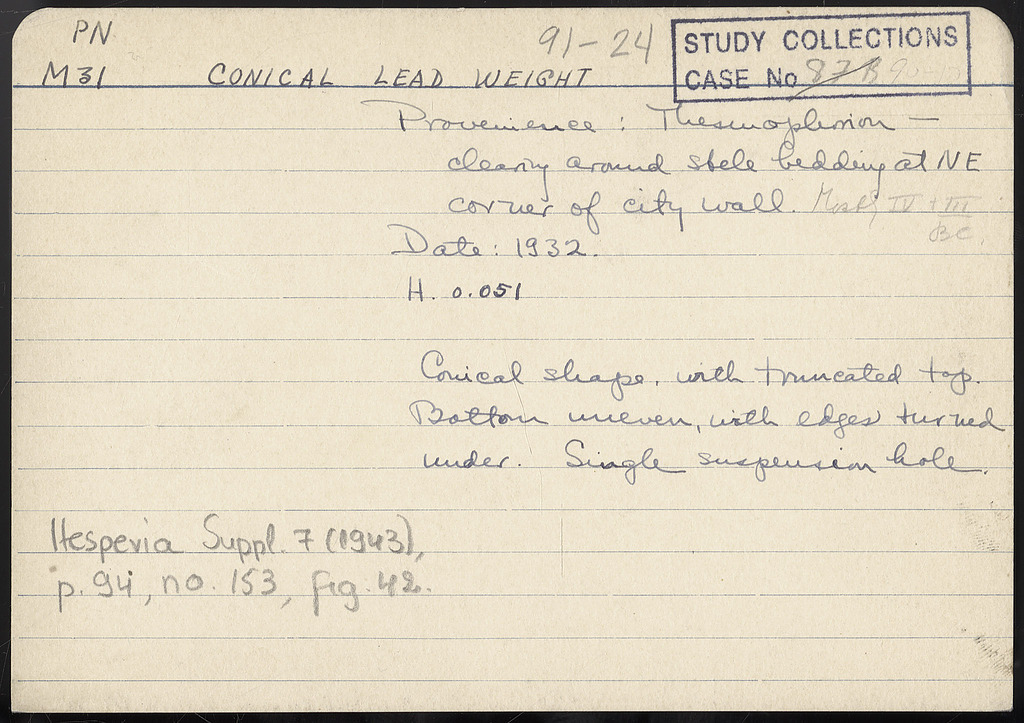 PN
91-24
STUDY COLLECTIONS
CASE No 87B
M31 CONICAL LEAD WEIGHT
Provenience: Thesmophorion —
clearing around stele bedding at NE
corner of city wall. Mostly IV + III
BC.
Date: 1932.
H. 0.051
Conical shape, with truncated top.
Bottom uneven, with edges turned
under. Single suspension hole.
Hesperia Suppl. 7 (1943),
p. 94, no. 153, fig. 42.